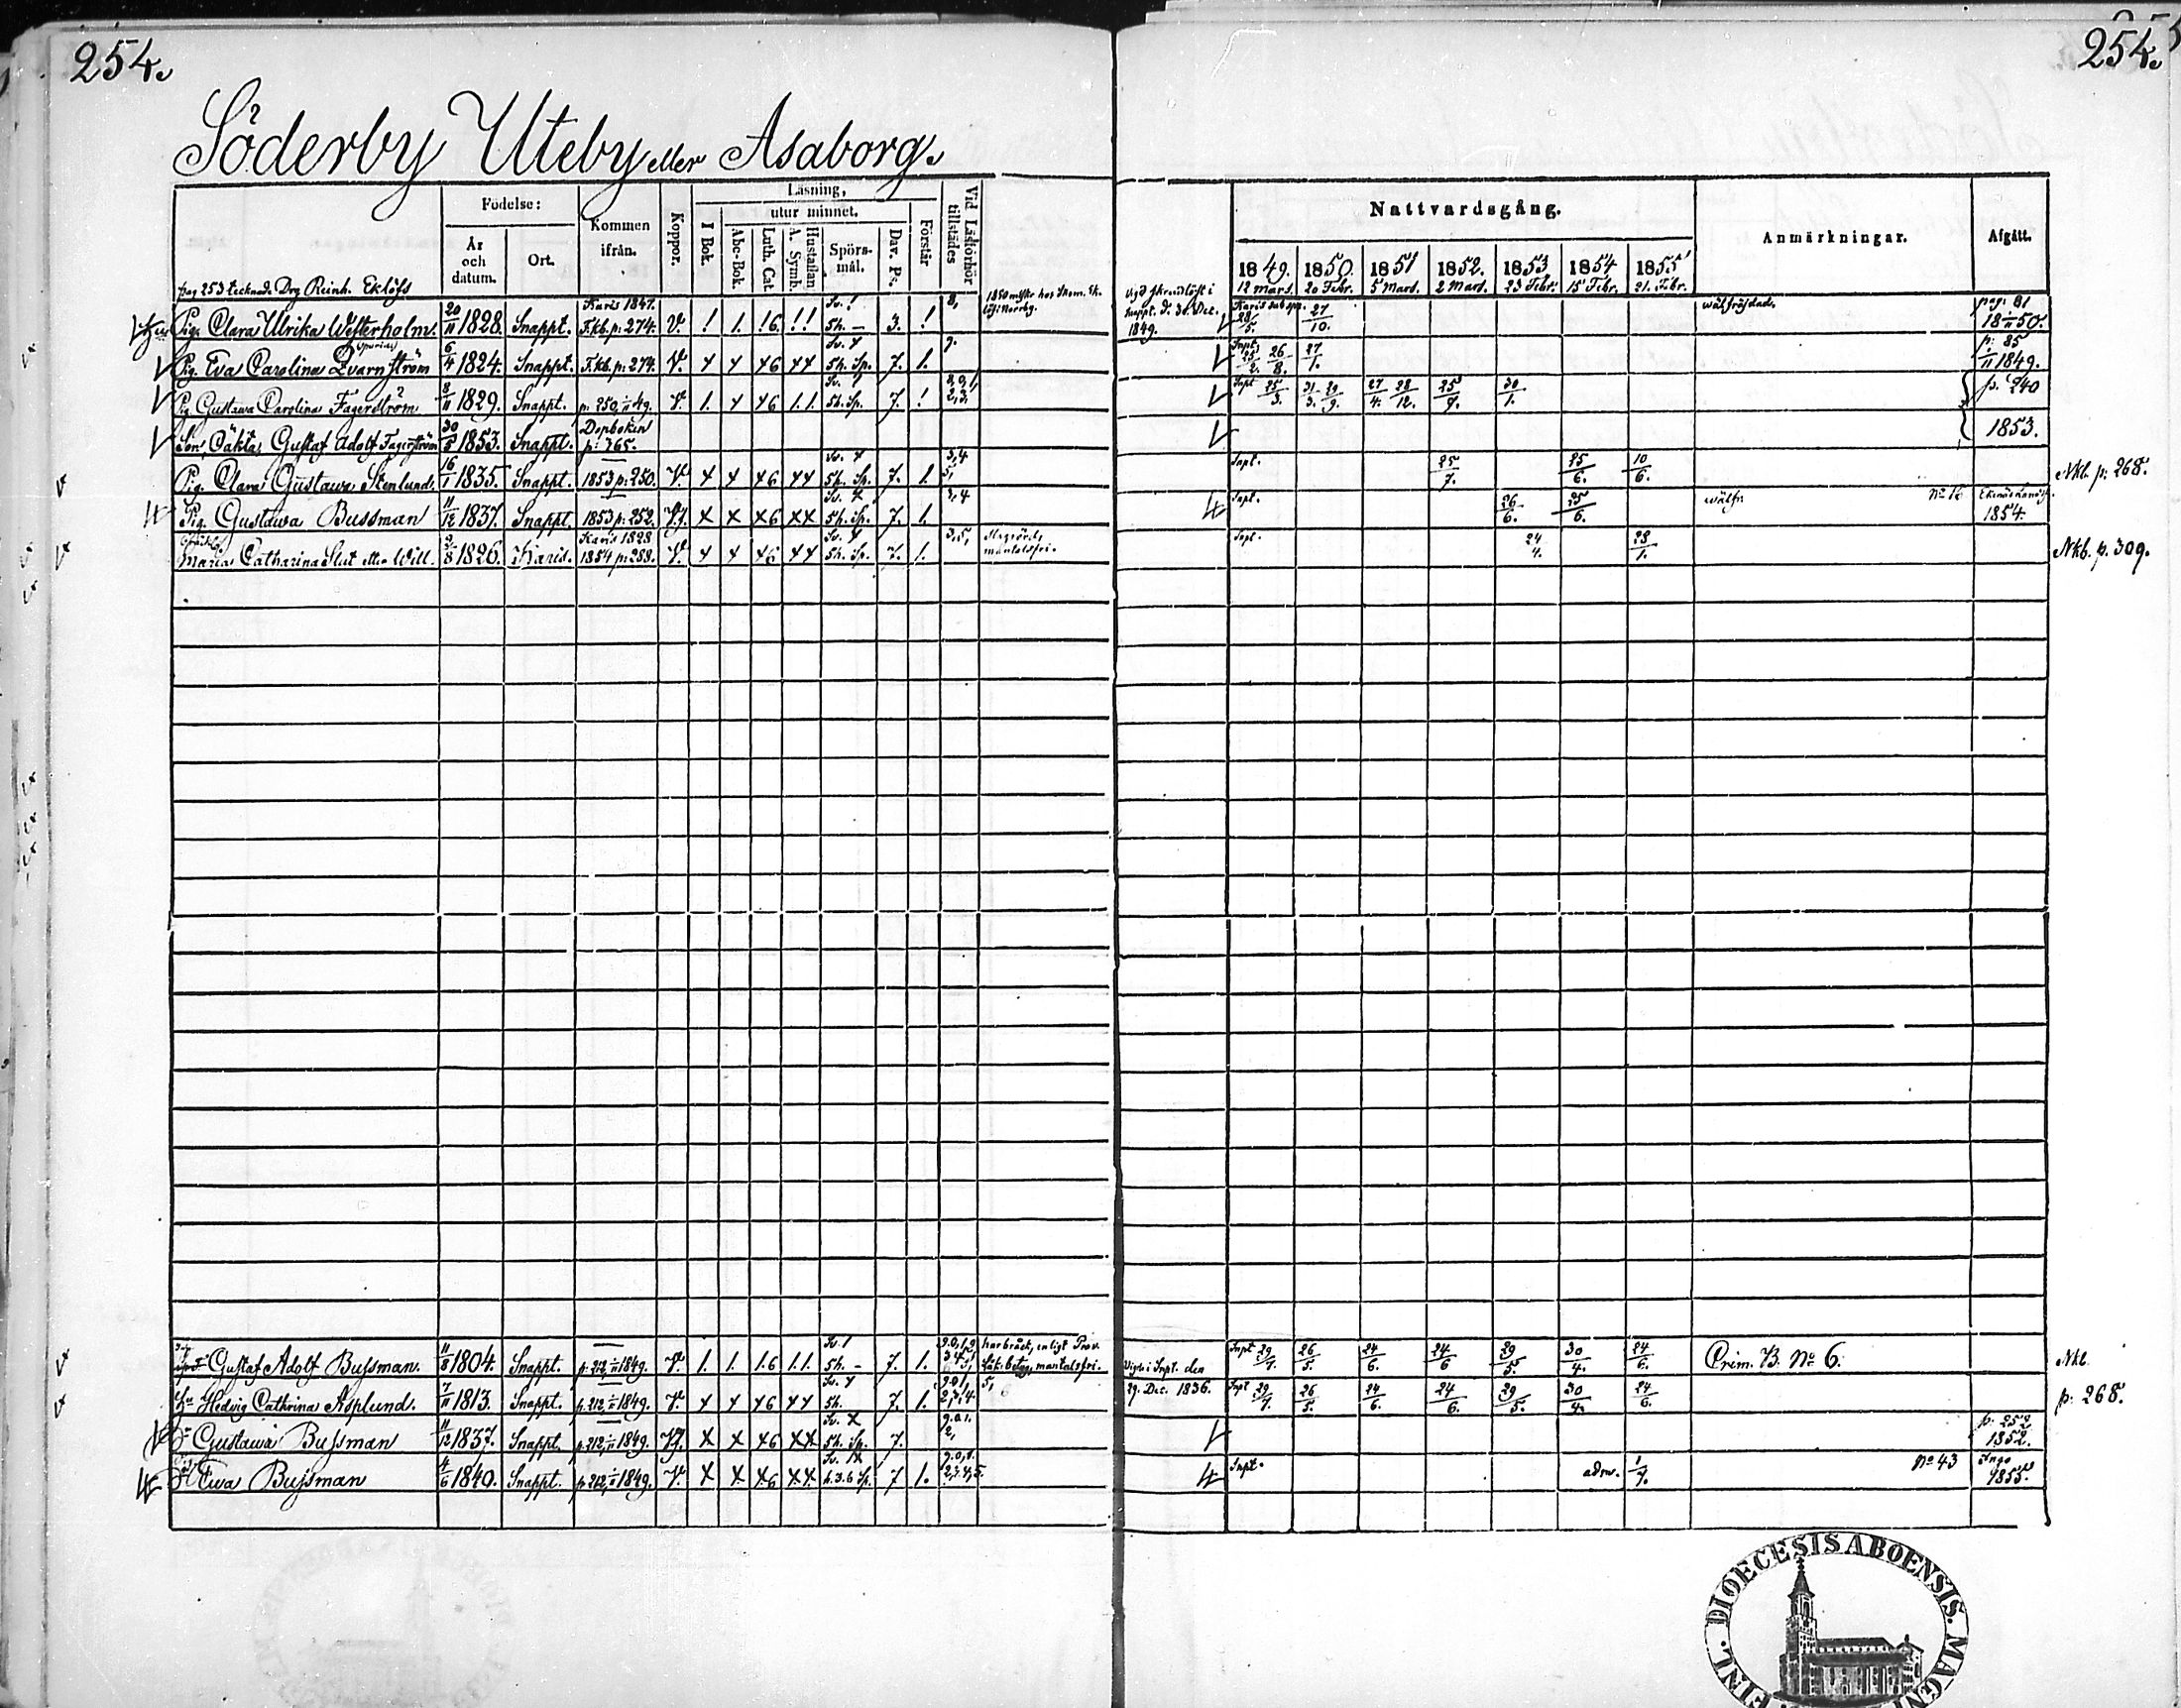 254.
254.
Söderby Uteby eller Asaborg.
Födelse:
År och datum.
Ort.
Kommen ifrån.
Koppor.
Läsning,
I Bok.
utur minnet.
Abc-Bok.
Luth. Cat.
A. Symb.
Hustaflan
Spörsmål.
Dav. Ps.
Förstår
Vid Läsförhör tillstädes
Nattvardsgång.
1849. 12 Mars.
1850. 20 Febr.
1851 5 Mars.
1852. 2 Mars.
1853 23 Febr.
1854 15 Febr.
1855 21. Febr.
Anmärkningar.
Afgått.
pag 253 tecknade Drg Reinh. Eklöfs
Pig. Clara Ulrika Westerholm. 20/11 1828. Snappt. Karis 1847. F.kb. p. 274. V. ! 1. !6 !! Sv. ! 5h. — 3. ! 8, Vigd Snappt. d. 30. Dec. 1849. 28/5. 27/10. wälfräjdad. pag: 81 18 50.
Pig. Eva Carolina Qvarnström 6/4 1824. Snappt. F.kb. p. 274. V. x x x6 xx Sv. x 5h. Sp. 7. 1. 9. Snpt 25/2. 26/8. 27/1. p: 85 1849.
Pig. Gustawa Carolina Fagerström 8/11 1829. Snappt. p. 250, 49. V. 1. x x6 1.1. 5h. Sp. 7. ! Snpt 25/3. 31/3. 29/9. 27/4. 28/12. 25/7. 30/1. p. 240
Son, Oäkta, Gustaf Adolf Fagerström 30/5 1853. Snappt. Dopboken p: 365. 1853.
Pig. Clara Gustawa Stenlund. 16/1 1835. Snappt. 1853 p: 250. V. x x x6 xx Sv. x 5h. Sp. 7. 1. 3,4 5, Snpt. 25/7. 25/6. 10/6. Nkb p: 268.
Pig. Gustawa Bussman 11/12 1837. Snappt. 1853 p: 252. V.g. x x x6 xx Sv. x 5h. Sp. 7. 1. 3,4 Snpt. 26/6. 25/6. wälfr. No 12 1854.
Maria Catharina Slut eller Will. 3/8 1826. Karis. Karis 1828 1854 p: 288. V. x x x6 xx Sv. x 5h. Sp. 7. 1. 3,5, mantalsfri. Snpt. 24/4. 28/1. Nkb. p. 309.
Gustaf Adolf Bussman. 11/8 1804. Snappt. p. 212, 1849. V. 1. 1. 1.6 1.1. Sv. 1 5h. - 7. 1. har bråck, enligt Prov. Läk. betyg, mantalsfri. Vigde i Snpt. den Snpt 29/7. 26/5. 24/6. 24/6 29/5. 30/4. 24/6. Prim. B. No 6. Nkb.
Hu Hedvig Cathrina Asplund. 7/11 1813. Snappt. p. 212, 1849. V. x x x6 xx Sv. x 5h. 7. 1. 29. Dec. 1836. Snpt 29/7. 26/5. 24/6. 24/6. 29/5. 30/4. 24/6. p: 268.
Gustawa Bussman 11/12 1837. Snappt. p. 212, 1849. V.g. x x x6 xx Sv. x 5h. Sp. 7. 9.0.1. 2, p: 252 1852.
Ewa Bussman 4/6 1840. Snappt. p 212, 1849. V. x x x6 xx Sv. 1x h.3.6 Sp. 7 1. 9.0,1. 2,3,4,5. Snpt. adm. 1/7. No 43 Ingo 1855.
FINL. DIOECESIS ABOENSIS. MAGNI